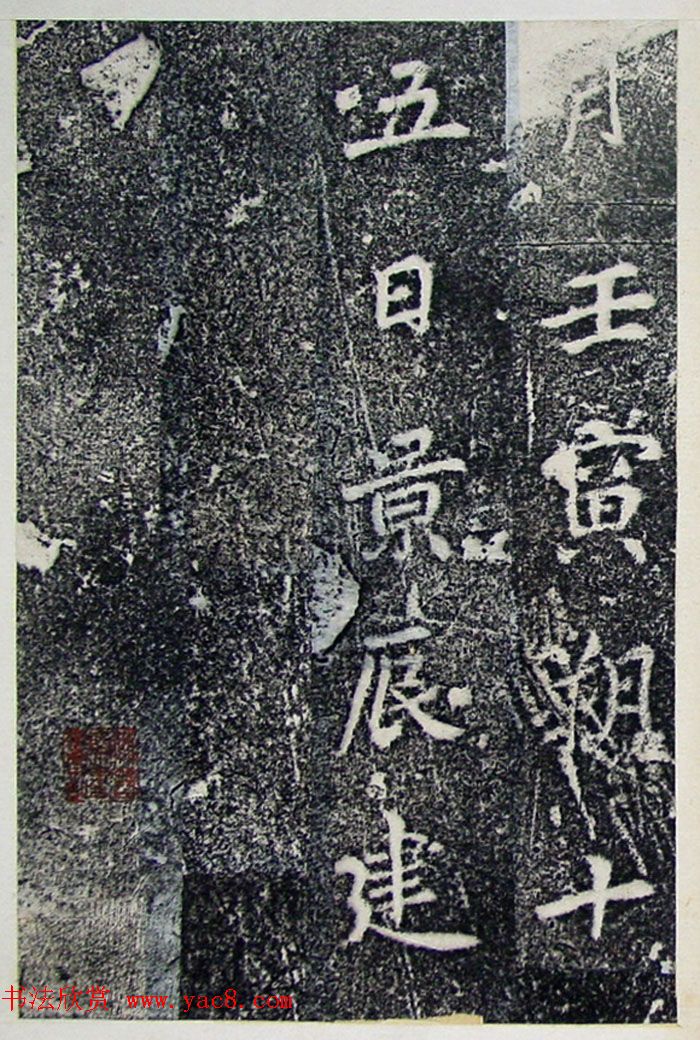 月壬寅朔十
五日景辰建
书法欣赏 www.yac8.com